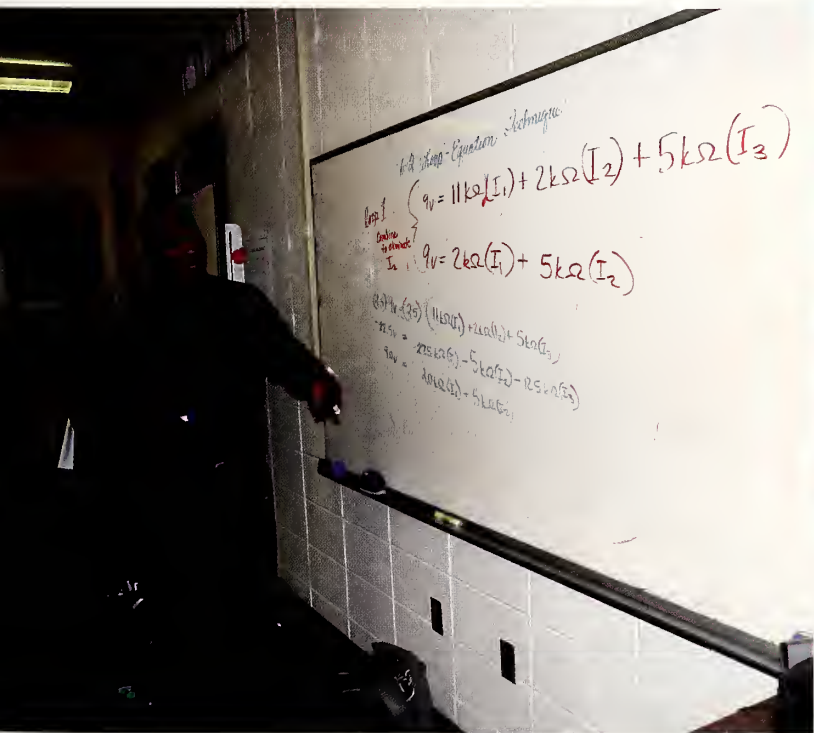 Loop-Equation Technique
Loop 1
9v = 11kΩ(I₁) + 2kΩ(I₂) + 5kΩ(I₃)
Combine
to eliminate
I₂
9v = 2kΩ(I₁) + 5kΩ(I₂)
9v (11kΩ(I₁) + 2kΩ(I₂) + 5kΩ(I₃)
= - 5kΩ(I₂) - 12.5kΩ(I₃)
9v = + 5kΩ(I₂)